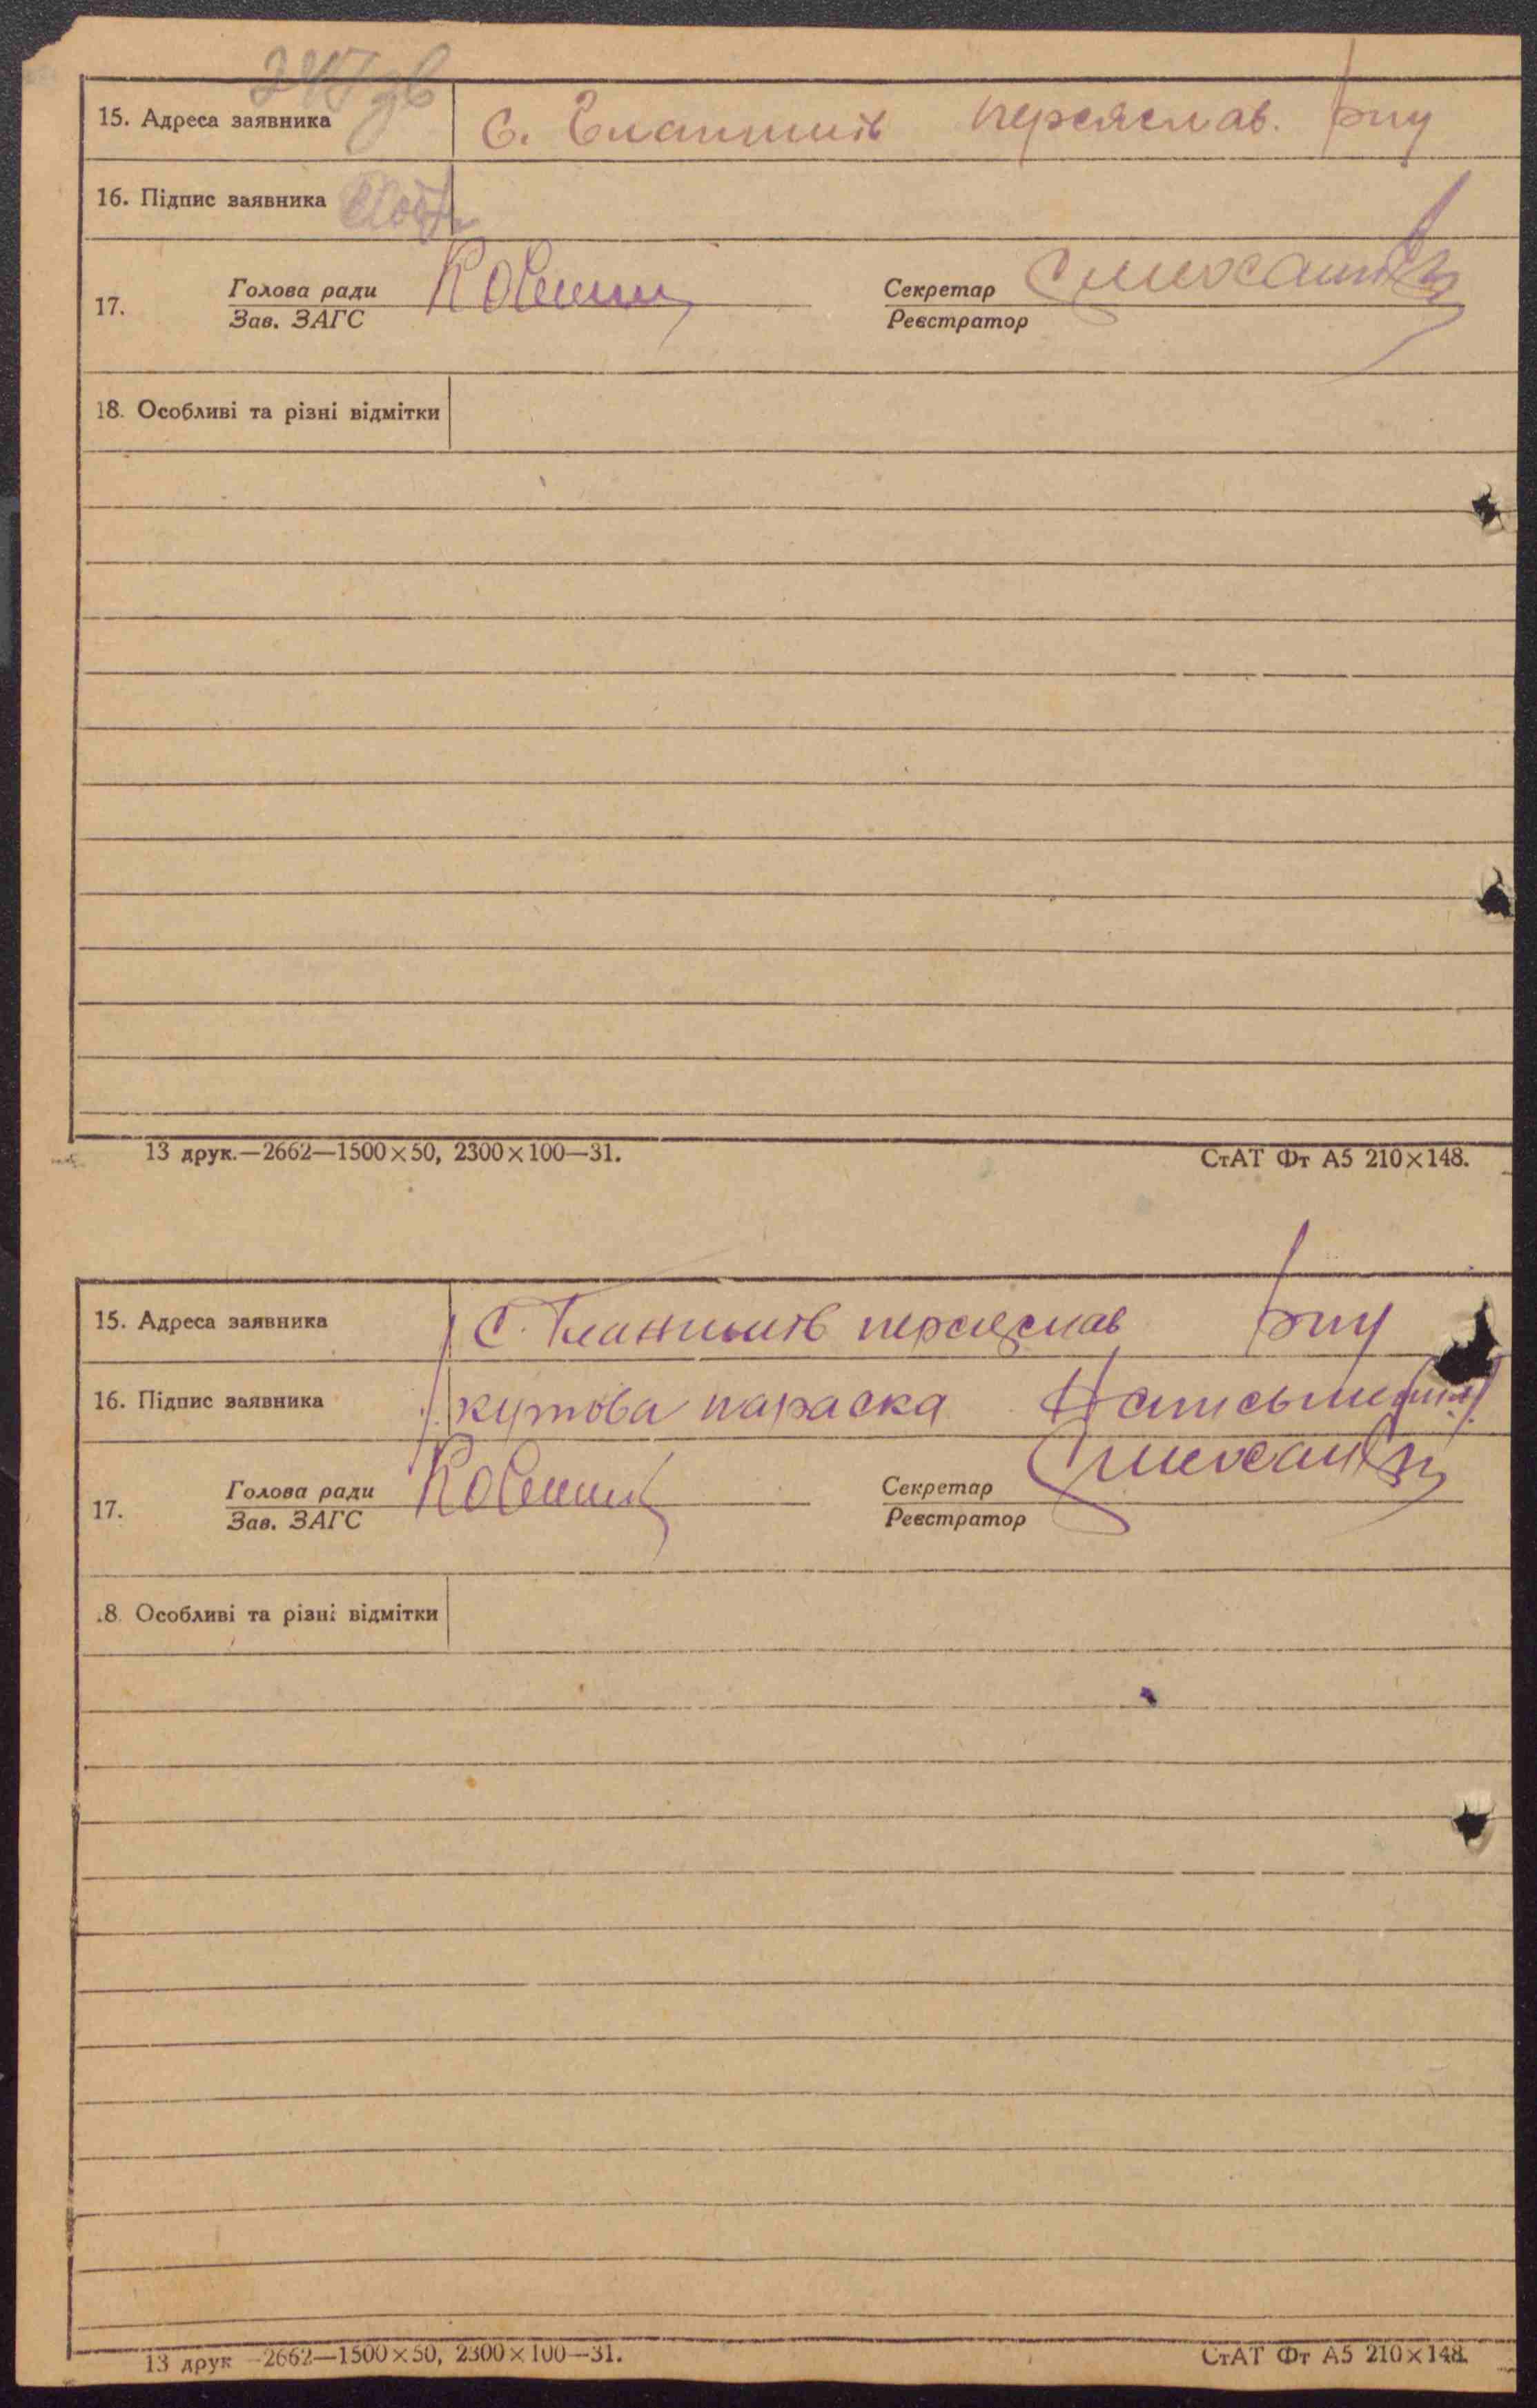 247 зв
15. Адреса заявника С. Гланишів переяслав. рну
16. Підпис заявника
17. Голова ради Секретар
Зав. ЗАГС Реєстратор
18. Особливі та різні відмітки
13 друк.—2662—1500×50, 2300×100—31. СтАТ Фт А5 210×148.
15. Адреса заявника С. Гланишів переяслав рну
16. Підпис заявника кутова параска
17. Голова ради Секретар
Зав. ЗАГС Реєстратор
.8. Особливі та різні відмітки
13 друк —2662—1500×50, 2300×100—31. СтАТ Фт А5 210×148.